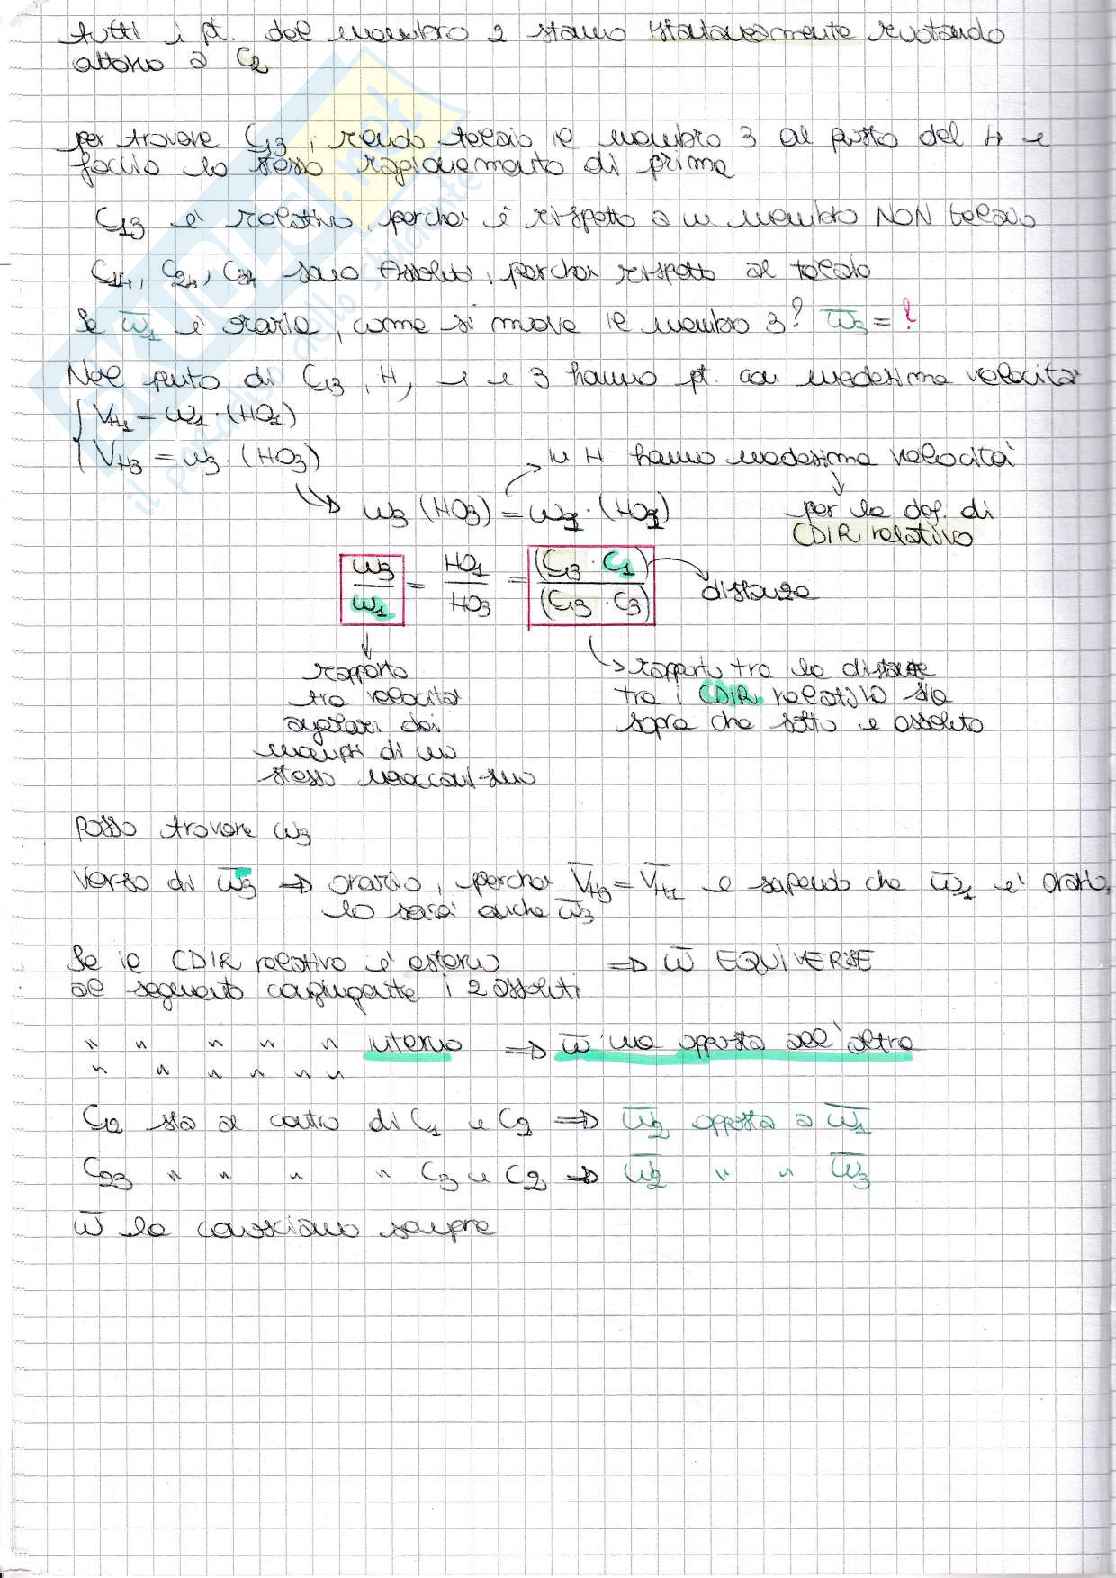 tutti i pt. del membro 2 stanno istantaneamente ruotando
attorno a C2
per trovare C13, rendo telaio il membro 3 al posto del 4 e
faccio lo stesso ragionamento di prima
C13 è relativo, perché è rispetto a un membro NON telaio
C14, C24, C34 sono Assoluti, perché rispetto al telaio
Se ω̅1 è oraria, come si muove il membro 3? ω̅3 = ?
Nel punto di C13, H, 1 e 3 hanno pt. con medesima velocità
VH1 = ω1 · (HO1)
VH3 = ω3 (HO3)
in H hanno medesima velocità
ω3 (HO3) = ω1 · (HO1)
per la def. di
CDIR relativo
ω3/ω1 = HO1/HO3 = (C13 · C1)/(C13 · C3)
distanza
rapporto
tra velocità
angolari dei
membri di uno
stesso meccanismo
rapporto tra la distanze
tra i CDIR relativo sia
sopra che sotto e assoluto
Posso trovare ω3
Verso di ω̅3 ⇒ orario, perché V̅H3 = V̅H1 e sapendo che ω̅1 è orario,
lo sarà anche ω̅3
Se il CDIR relativo è esterno ⇒ ω̅ EQUIVERSE
al segmento congiungente i 2 assoluti
" " " " " interno ⇒ ω̅ una opposta all'altra
" " " " " "
C12 sta al centro di C1 e C2 ⇒ ω̅2 opposta a ω̅1
C23 " " " " C3 e C2 ⇒ ω̅2 " " ω̅3
ω̅ la conosciamo sempre